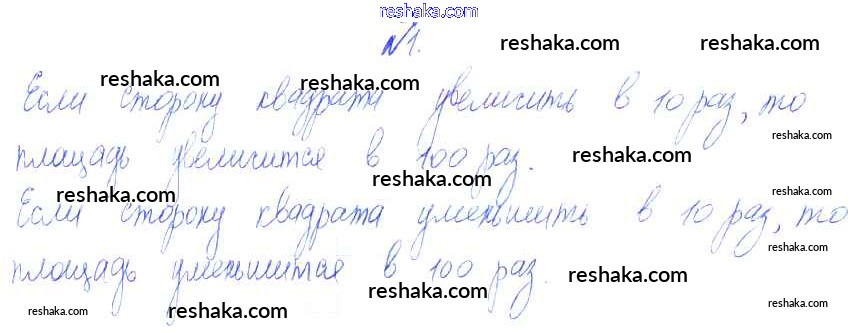 reshaka.com
№1.
reshaka.com reshaka.com
reshaka.com reshaka.com
Если сторону квадрата увеличить в 10 раз, то
reshaka.com
площадь увеличится в 100 раз. reshaka.com
reshaka.com reshaka.com reshaka.com
Если сторону квадрата уменьшить в 10 раз, то
reshaka.com
площадь уменьшится в 100 раз. reshaka.com
reshaka.com reshaka.com reshaka.com reshaka.com